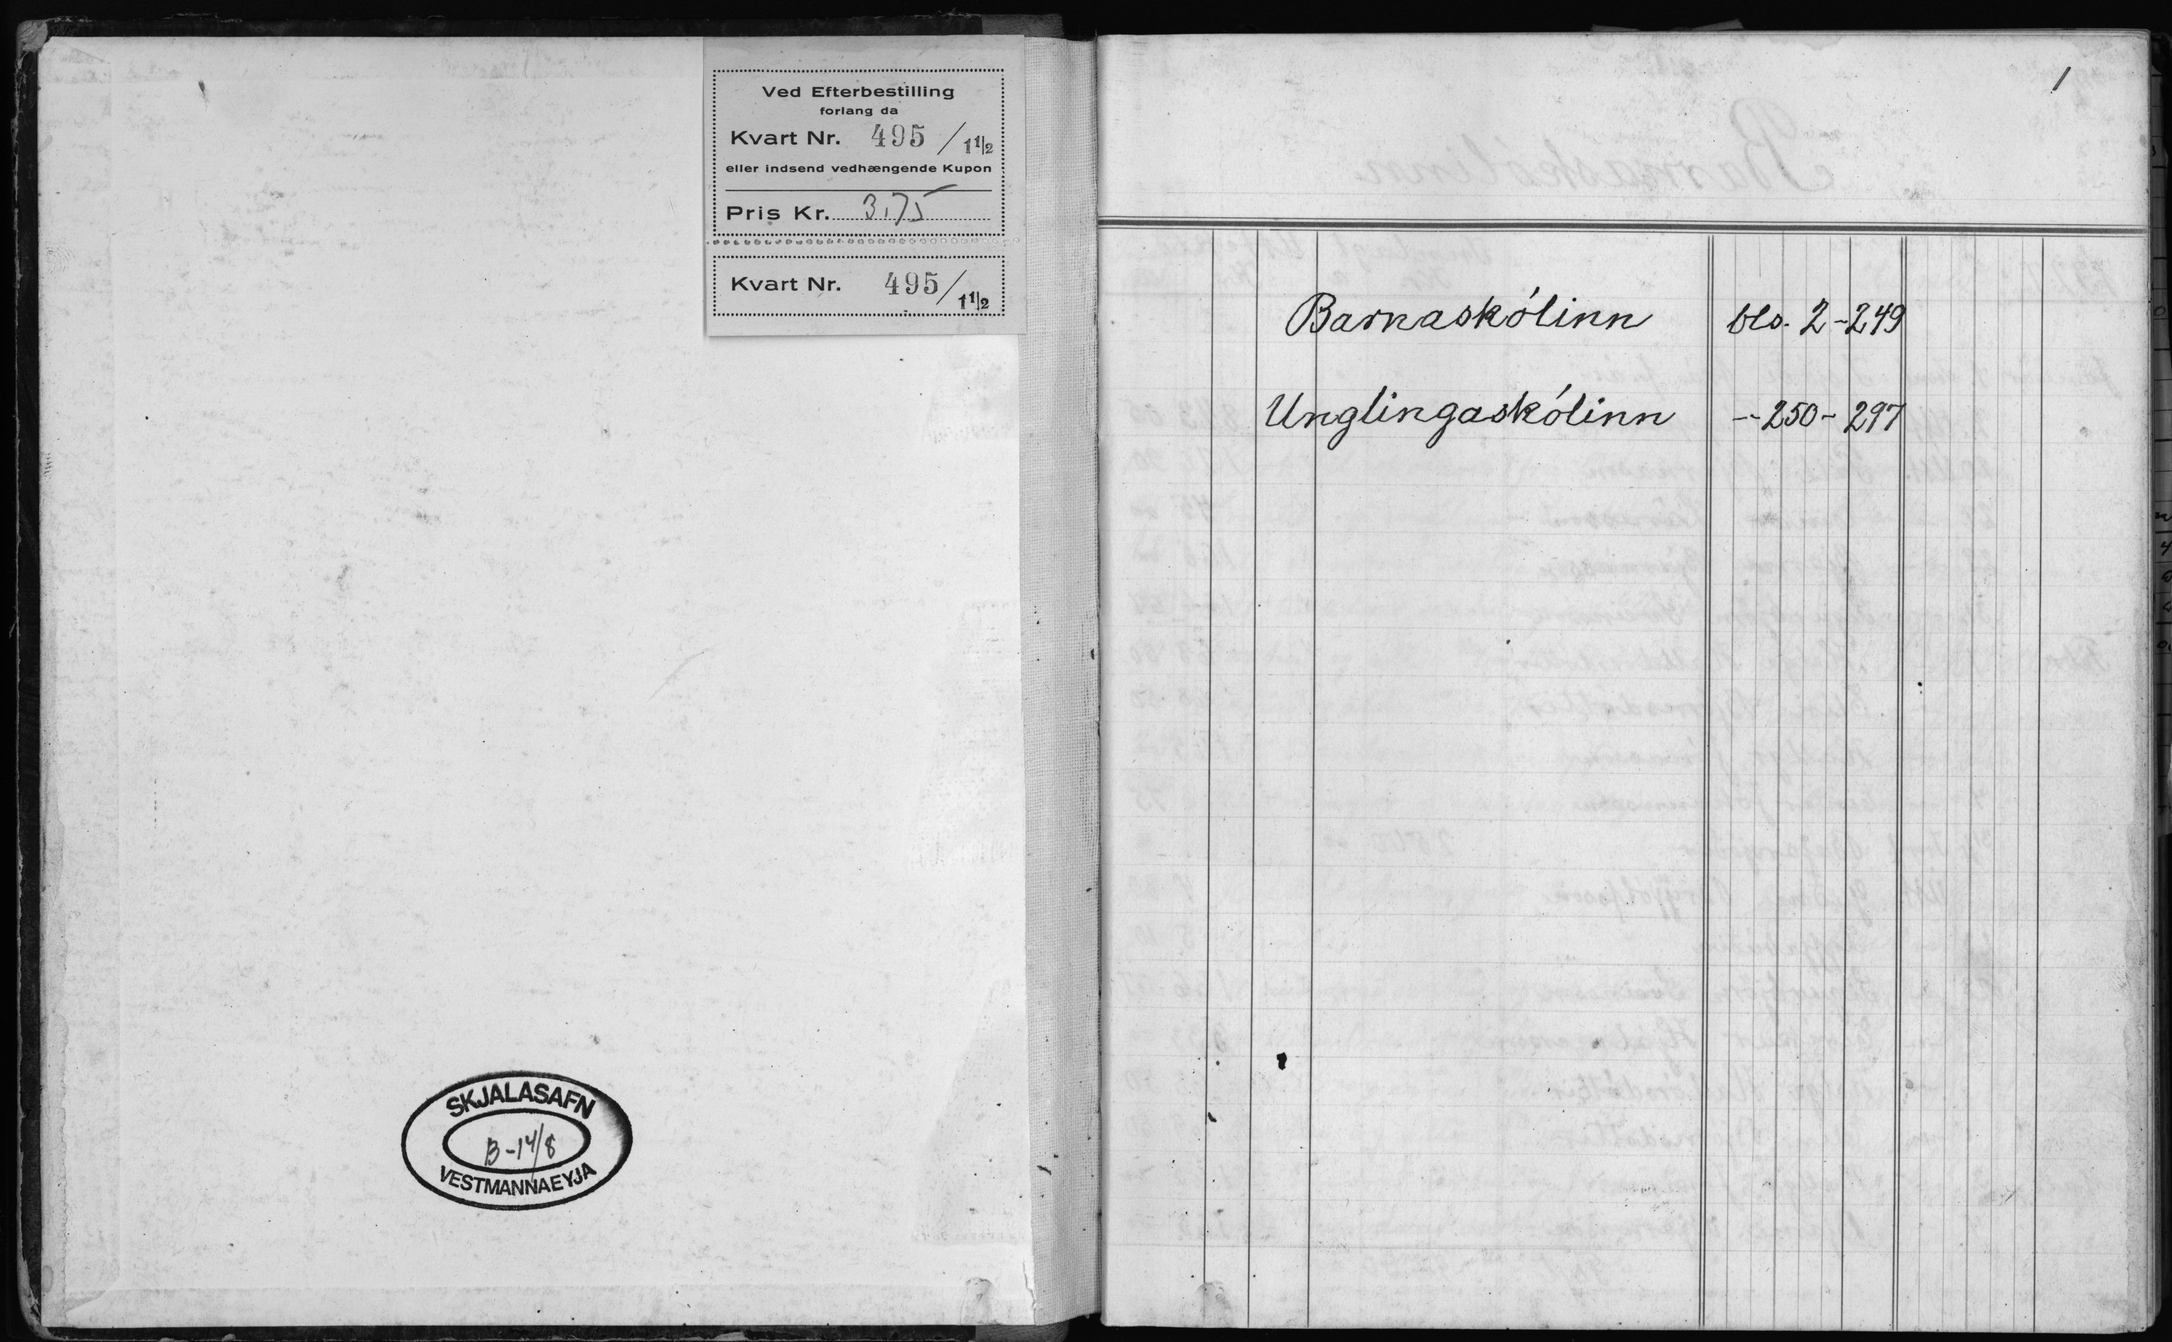 Ved Efterbestilling
forlang da
Kvart Nr. 495/1 1/2
eller indsend vedhængende Kupon
Pris Kr. 3.75
Kvart Nr. 495/1 1/2
SKJALASAFN
B-14/8
VESTMANNAEYJA
1
Barnaskólinn bls. 2-249
Unglingaskólinn -- 250-297